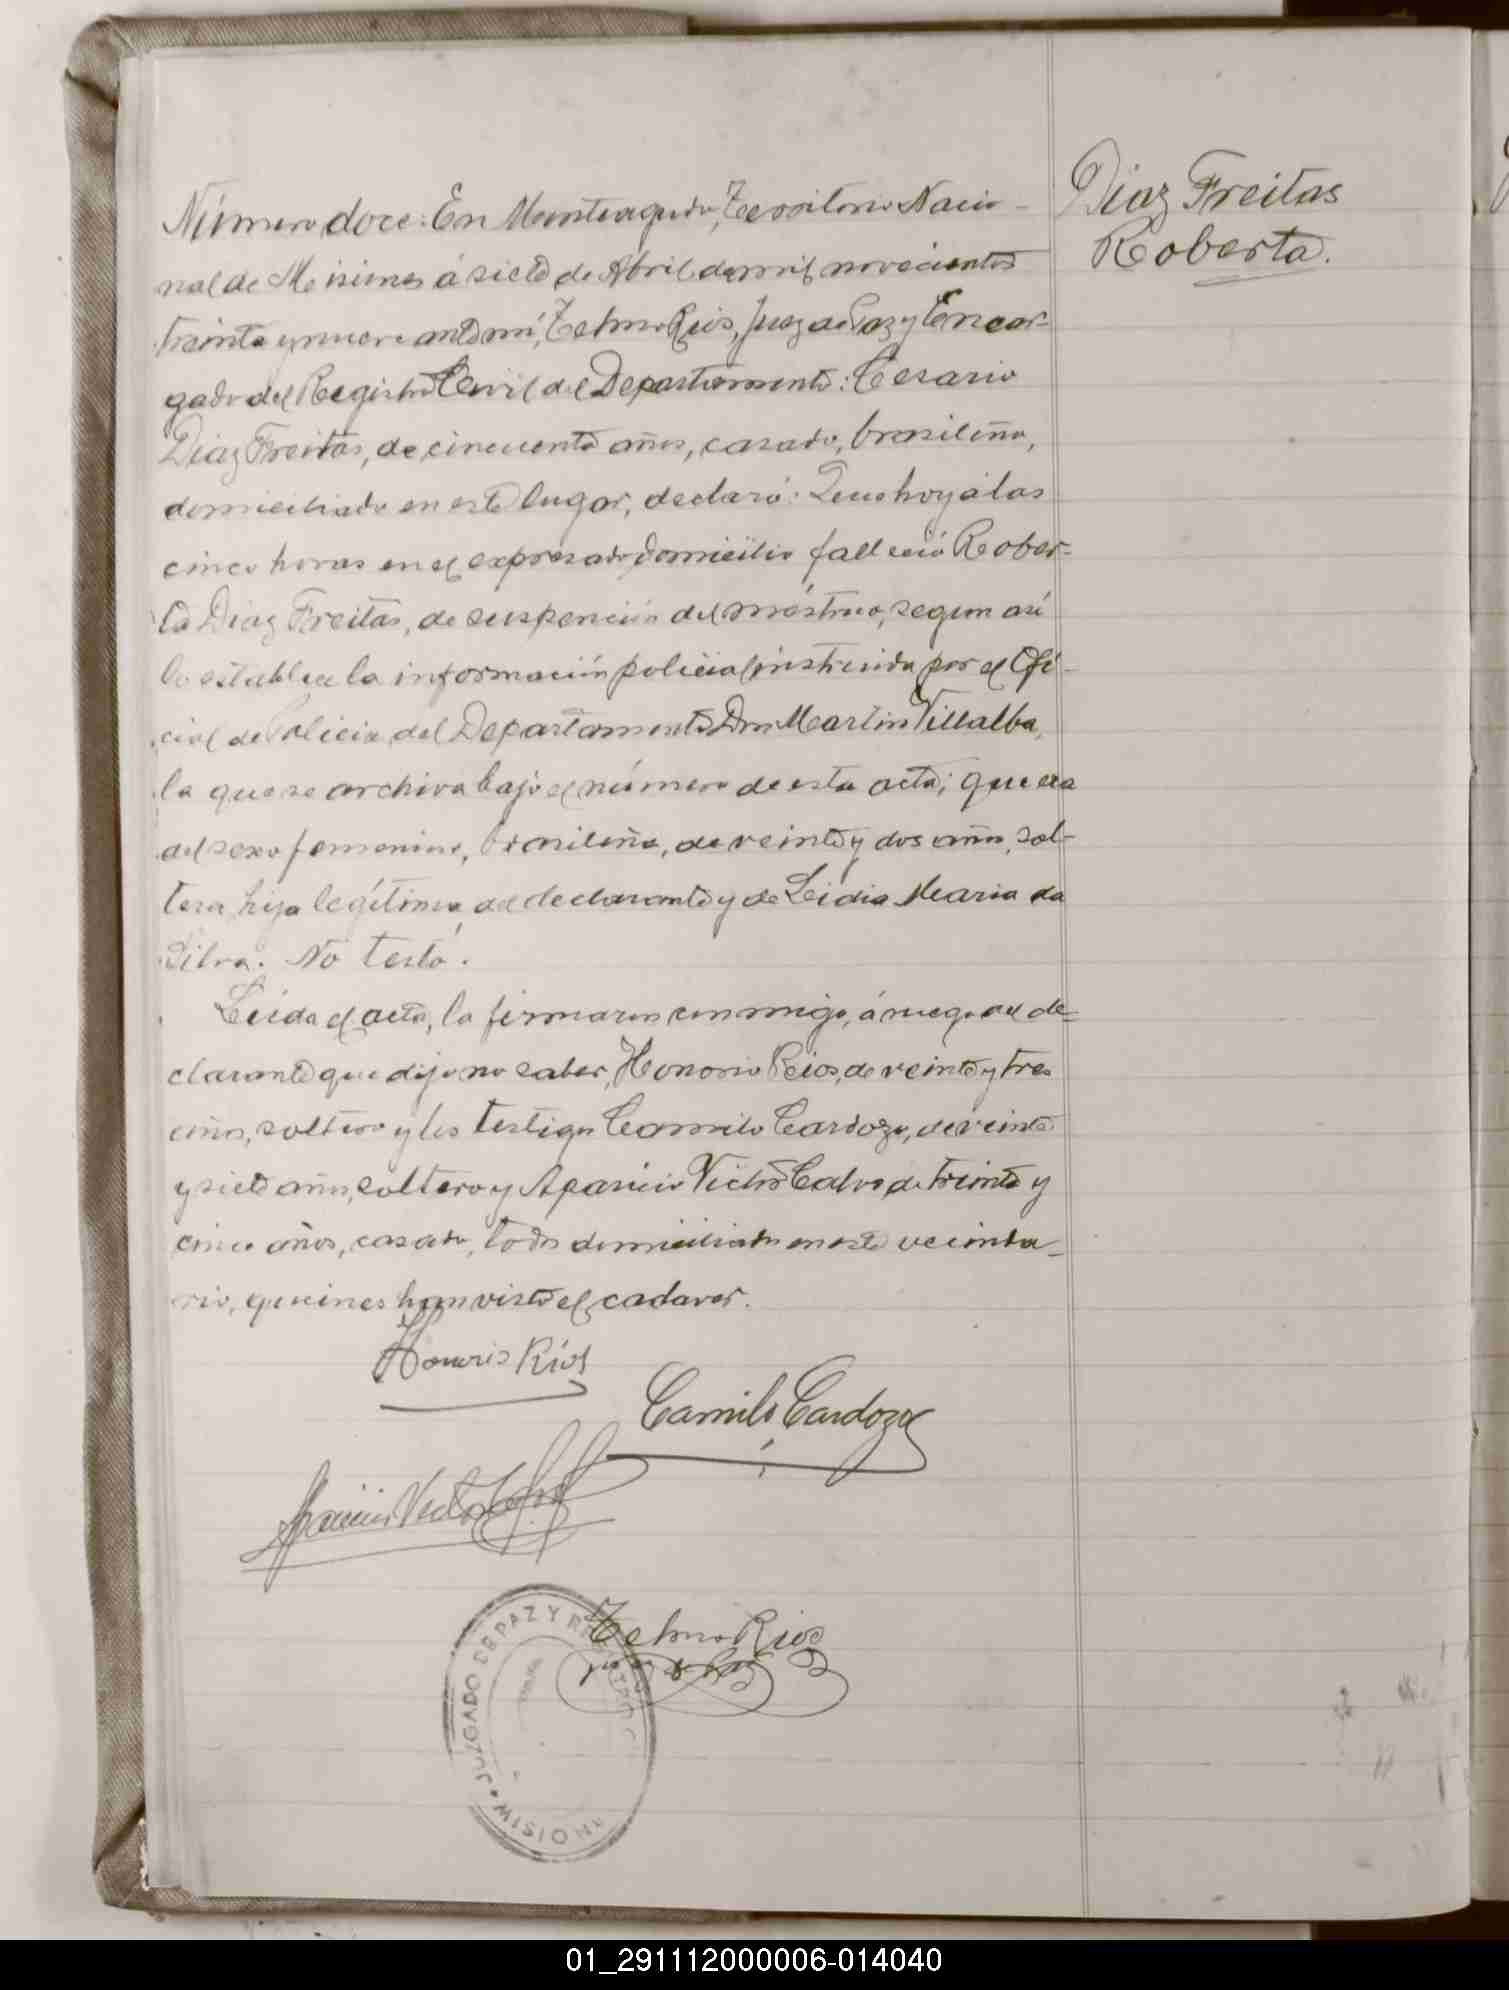 Número doce: En Monteagudo, Territorio Nacio-
nal de Misiones á siete de Abril de mil novecientos
treinta y nueve ante mí, Telmo Rios, Juez de Paz y Encar-
gado del Registro Civil del Departamento: Cesario
Diaz Freitas, de cincuenta años, casado, brasileño,
domiciliado en este lugar, declaró: Que hoy á las
cinco horas en el expresado domicilio falleció Rober-
ta Diaz Freitas, de suspención del méstruo, segun así
lo establece la información policial instruida por el Ofi-
cial de Policia del Departamento Don Martin Villalba,
la que se archiva bajo el número de esta acta; que era
del sexo femenino, brasileña, de veinte y dos años, sol-
tera, hija legítima del declarante y de Leidia Maria da
Silva. No testó.
Leída el acta, la firmaron conmigo, á ruego del de-
clarante que dijo no saber, Honorio Rios, de veinte y tres
años, soltero y los testigos Camilo Cardozo, de veinte
y siete años, soltero y Aparicio Victor Calvo de treinta y
cinco años, casado, todos domiciliados en este vecinda-
rio, quienes han visto el cadaver.
Diaz Freitas
Roberta.
Honorio Ríos
Camilo Cardozo
Telmo Rios
JUZGADO DE PAZ Y
MISIONES
01_291112000006-014040